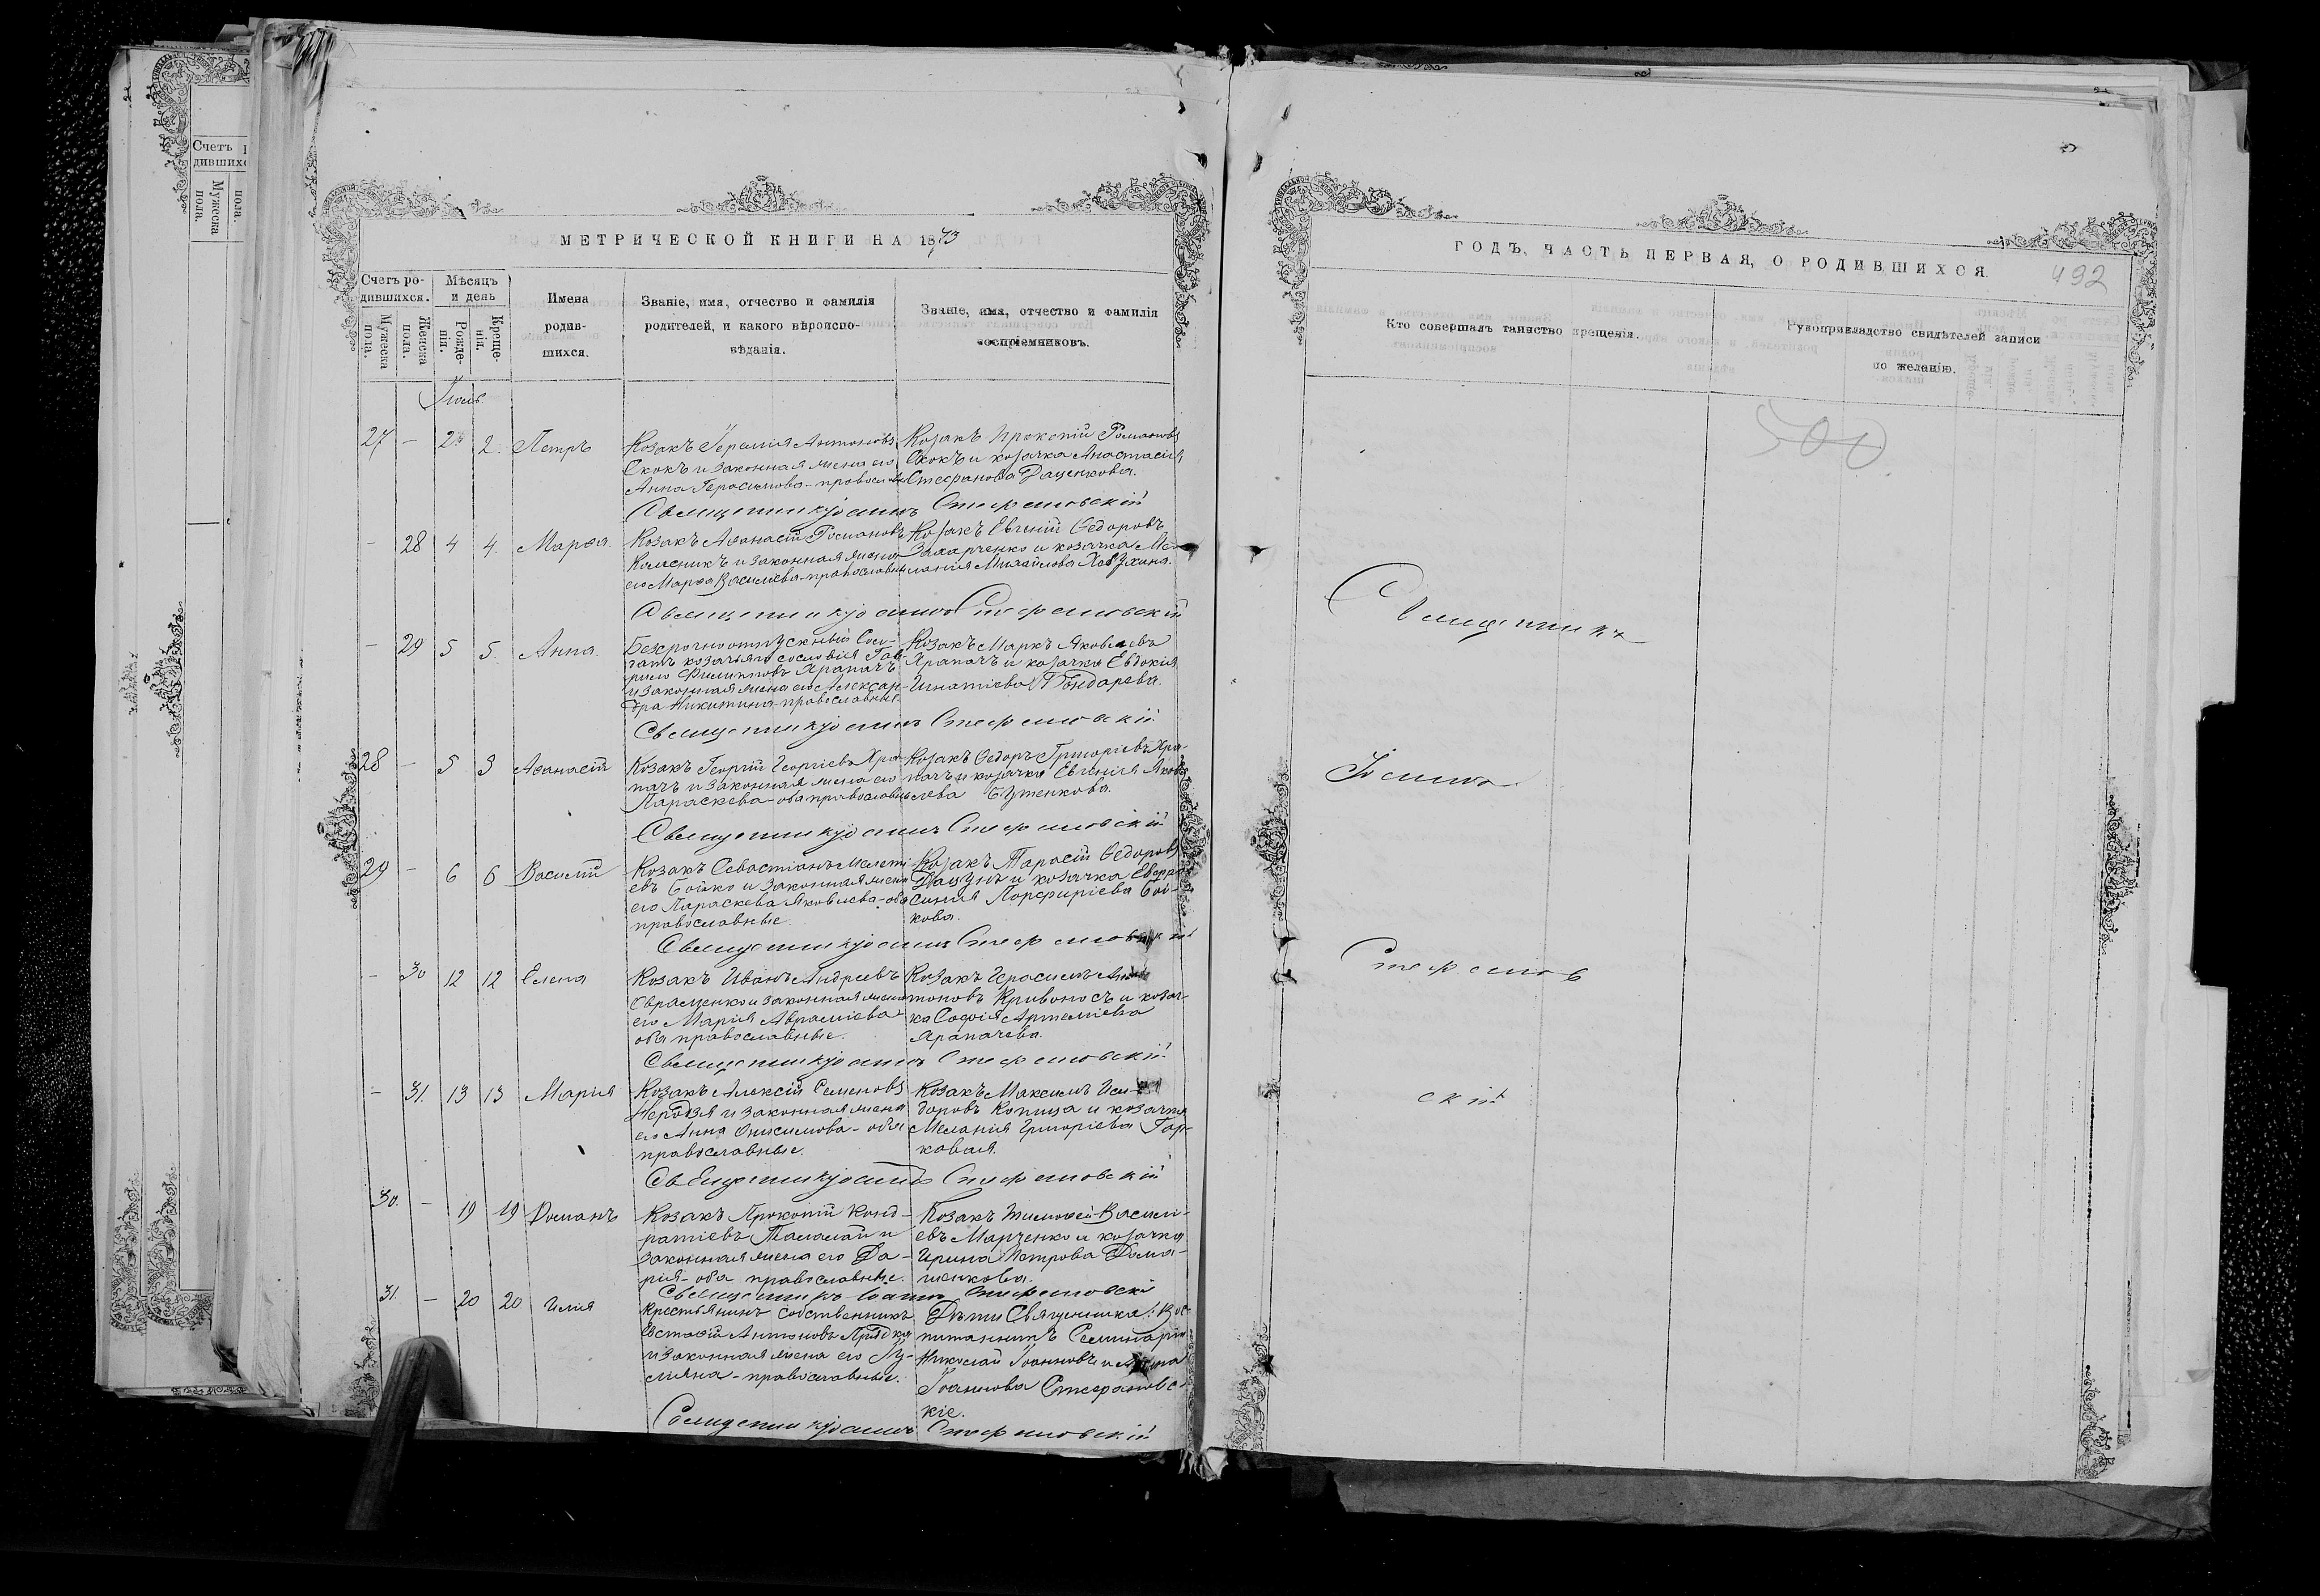 Счетъ
дившихс
Мужеска пола.
пола.
МЕТРИЧЕСКОЙ КНИГИ НА 1873
Счетъ родившихся.
Мужеска пола.
Женска пола.
Мѣсяцъ и день
Рожденія.
Крещенія.
Имена родившихся.
Званіе, имя, отчество и фамилія
родителей, и какого вѣроиспо-
вѣданія.
Званіе, имя, отчество и фамилія
воспріемниковъ.
27 — 2 2. Петръ
Козакъ Іеремія Антоновъ
Скокъ и законная жена его
Анна Герасимова - православн
Козакъ Прокопій Романовъ
Скокъ и козачка Анастасія
Стефанова Даценкова.
Священникъ Іоаннъ Стефановскій
— 28 4 4. Марѳа.
Козакъ Аѳанасій Романовъ
Колесникъ и законная жена
его Марѳа Василіева - православны
Козакъ Евгеній Ѳедоровъ
Захарченко и козачка Ме-
ланія Михайлова
Священникъ Іоаннъ Стефановскій
— 29 5 5. Анна.
Безсрочноотпускный Сол-
датъ козачьяго сословія Гав-
рило Филипповъ Храпачъ
и законная жена его Алексан-
дра Никитина - православные.
Козакъ Маркъ Яковлевъ
Храпачъ и козачка Евдокія
Игнатіева Бондарева.
Священникъ Іоаннъ Стефановскій
28 — 5 5 Аѳанасій
Козакъ Георгій Георгіевъ Хра-
пачъ и законная жена его
Параскева - оба православны
Козакъ Ѳедоръ Григоріевъ Хра-
пачъ и козачка Евгенія Яков-
лева Бутенкова.
Священникъ Іоаннъ Стефановскій
29 — 6 6 Василій
Козакъ Севастіанъ Мелеті-
евъ Бойко и законная жена
его Параскева Яковлева - оба
православные.
Козакъ Тарасій Ѳедоровъ
и козачка Евфро-
синія Порфиріева Бой-
кова.
Священникъ Іоаннъ Стефановскій
— 30 12 12 Елена
Козакъ Иванъ Андреевъ
Овраменко и законная жена
его Марія Авраміева
оба православные.
Козакъ Герасимъ Ан-
тоновъ Кривоносъ и козач-
ка Софія Артеміева
Храпачева.
Священникъ Іоаннъ Стефановскій
— 31. 13 13 Марія
Козакъ Алексій Семеновъ
и законная жена
его Анна Онисимова - оба
православные.
Козакъ Максимъ Иси-
доровъ Копица и козачка
Меланія Григоріева Гор-
ковая.
Священникъ Іоаннъ Стефановскій
30. — 19 19 Романъ
Козакъ Прокопій Конд-
ратіевъ Таламай и
законная жена его Да-
рія - оба православные.
Козакъ Тимоѳей Василі-
евъ Марченко и козачка
Ирина Петрова Дома-
шенкова.
Священникъ Іоаннъ Стефановскій
31. — 20 20 Илія
Крестьянинъ собственникъ
Евстафій Антоновъ Прядка
и законная жена его Іу-
ліана - православные.
Дѣти Священника: Вос-
питанникъ Семинаріи
Николай Іоанновъ и
Іоаннова Стефановс-
кіе.
Священникъ Іоаннъ Стефановскій
ГОДЪ, ЧАСТЬ ПЕРВАЯ, О РОДИВШИХСЯ.
492
Кто совершалъ таинство крещенія.
Рукоприкладство свидѣтелей записи
по желанію.
500
Священникъ
Іоаннъ
Стефанов
скій